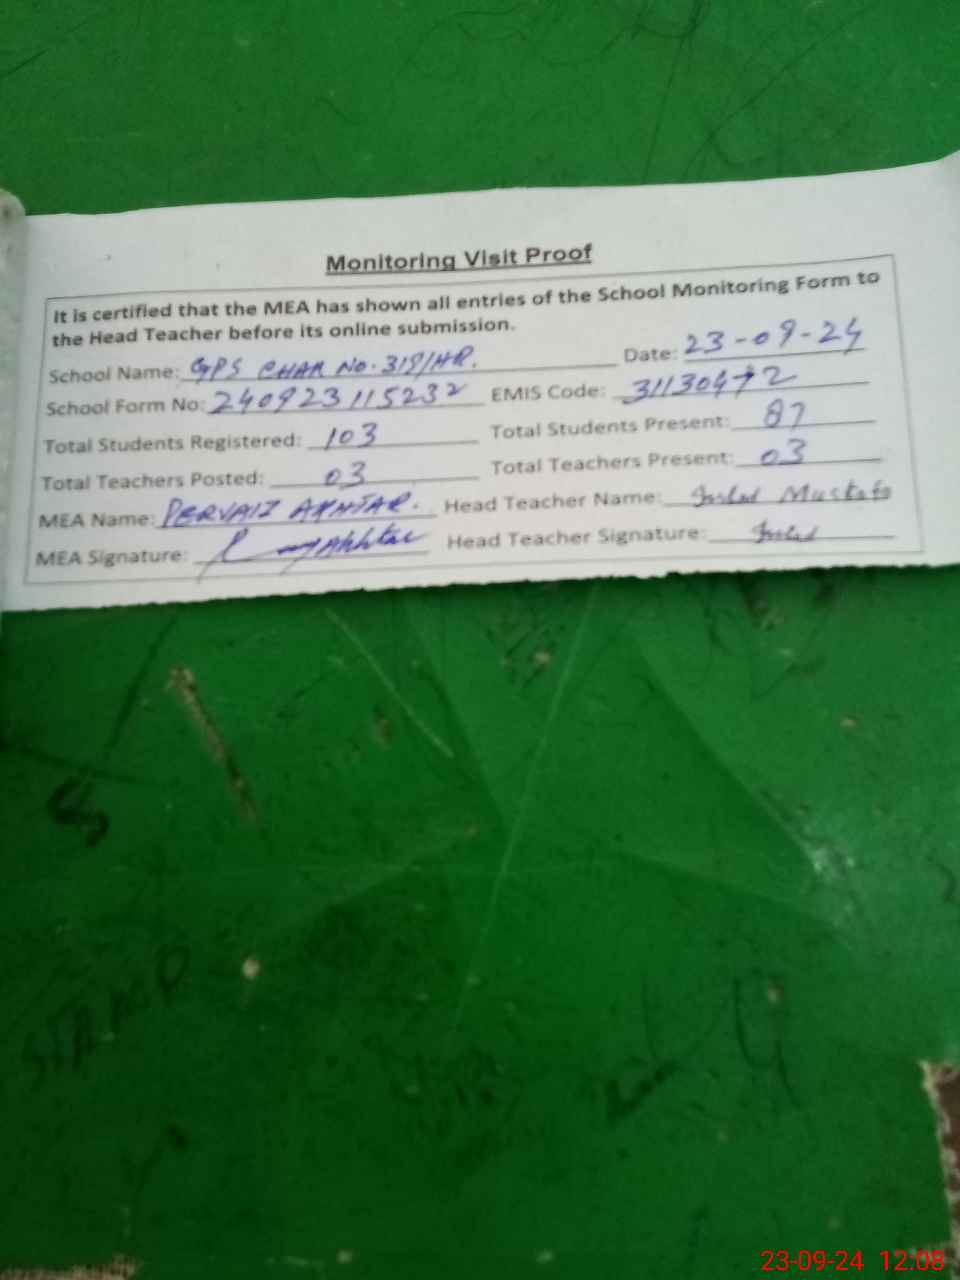 Monitoring Visit Proof
It is certified that the MEA has shown all entries of the School Monitoring Form to
the Head Teacher before its online submission.
School Name: GPS CHAK No. 319/HR. Date: 23-09-24
School Form No: 240923115232 EMIS Code: 31130472
Total Students Registered: 103 Total Students Present: 87
Total Teachers Posted: 03 Total Teachers Present: 03
MEA Name: PERVAIZ AKHTAR. Head Teacher Name: Mustafa
MEA Signature: Akhtar Head Teacher Signature:
STAMP
23-09-24 12:08